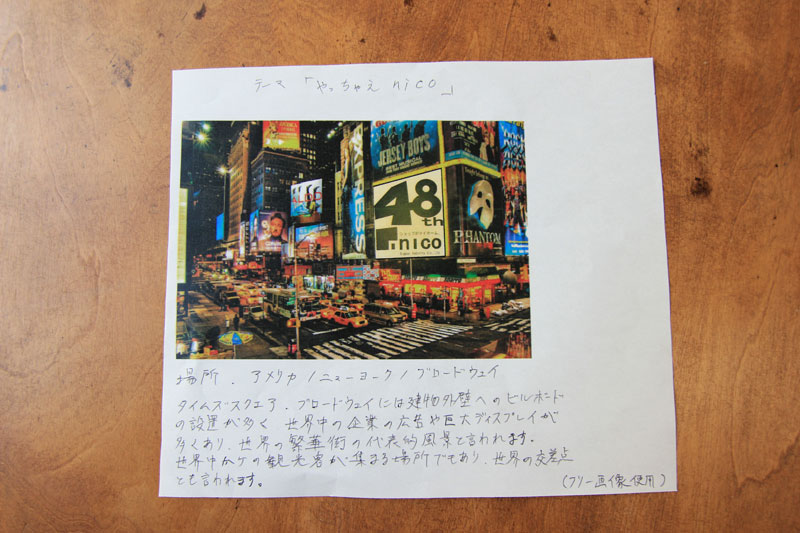 テーマ 「やっちゃえ nico」
JERSEY BOYS
ROCK
OF
AGES
EXPRESS
ALDO
48th
nico
PHANTOM
場所. アメリカ/ニューヨーク/ブロードウェイ
タイムズスクエア. ブロードウェイには建物外壁へのビルボード
の設置が多く. 世界中の企業の広告や巨大ディスプレイが
多くあり. 世界の繁華街の代表的風景と言われます。
世界中からの観光客が集まる場所でもあり. 世界の交差点
とも言われます。
(フリー画像使用)